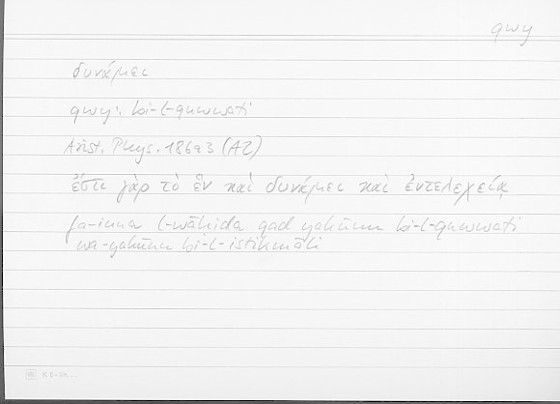 qwy
δυνάμει
qwy: bi-l-quwwati
Arist. Phys. 186a3 (AZ)
ἔστι γὰρ τὸ ἓν καὶ δυνάμει καὶ ἐντελεχείᾳ
fa-inna l-wāḥida qad yakūnu bi-l-quwwati
wa-yakūnu bi-l-istikmāli